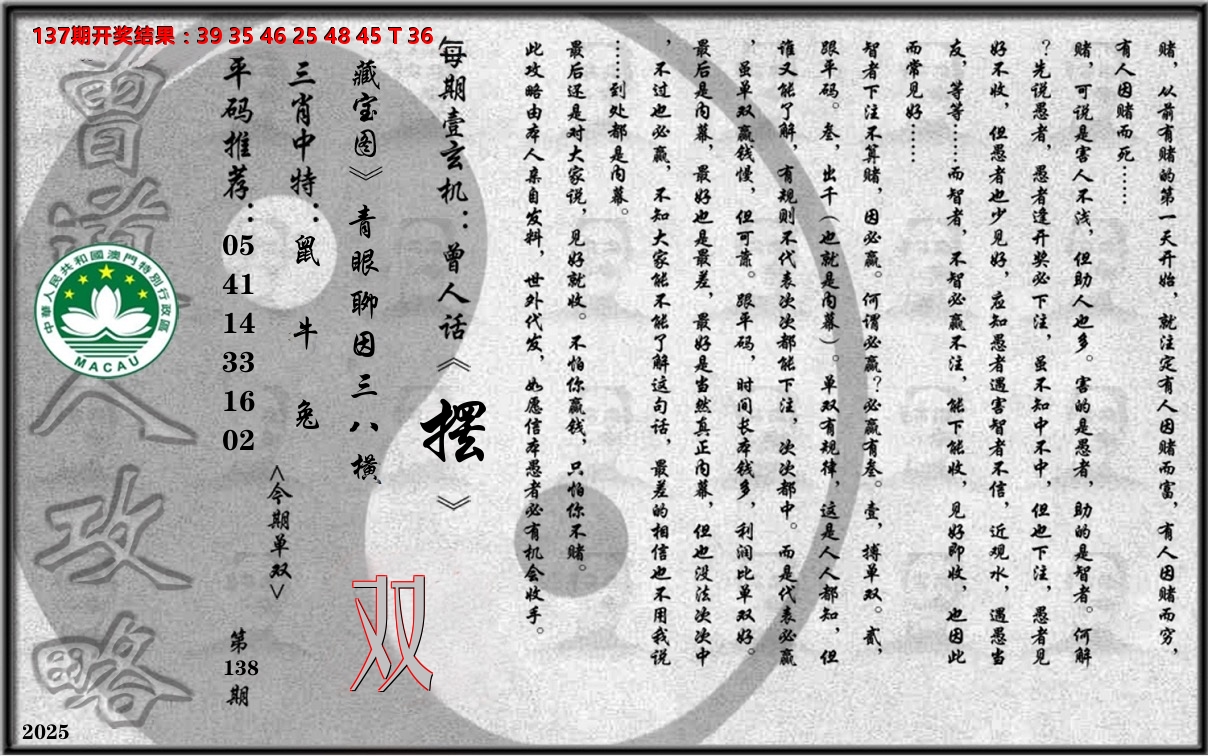 137期开奖结果：39 35 46 25 48 45 T 36
赌，从前有赌的第一天开始，就注定有人因赌而富，有人因赌而穷，
有人因赌而死……
赌，可说是害人不浅，但助人也多。害的是愚者，助的是智者。何解
？先说愚者，愚者逢开奖必下注，虽不知中不中，但也下注，愚者见
好不收，但愚者也少见好，应知愚者遇害智者不信，近观水，遇愚当
友，等等……而智者，不智必赢不注，能下能收，见好即收，也因此
而常见好……
智者下注不算赌，因必赢。何谓必赢？必赢有叁。壹，搏单双。贰，
跟平码。叁，出千（也就是内幕）。单双有规律，这是人人都知，但
谁又能了解，有规则不代表次次都能下注，次次都中。而是代表必赢
，虽单双赢钱慢，但可靠。跟平码，时间长本钱多，利润比单双好。
最后是内幕，最好也是最差，最好是当然真正内幕，但也没法次次中
，不过也必赢，不知大家能不能了解这句话，最差的相信也不用我说
……到处都是内幕。
最后还是对大家说，见好就收。不怕你赢钱，只怕你不赌。
此攻略由本人亲自发料，世外代发，如愿信本愚者必有机会收手。
每期壹玄机：曾人话《摆》
藏宝图》青眼聊因三八横
双
三肖中特：鼠 牛 兔
<今期单双>
平码推荐：05 41 14 33 16 02
第138期
曾道人攻略
中華人民共和國澳門特別行政區
MACAU
2025